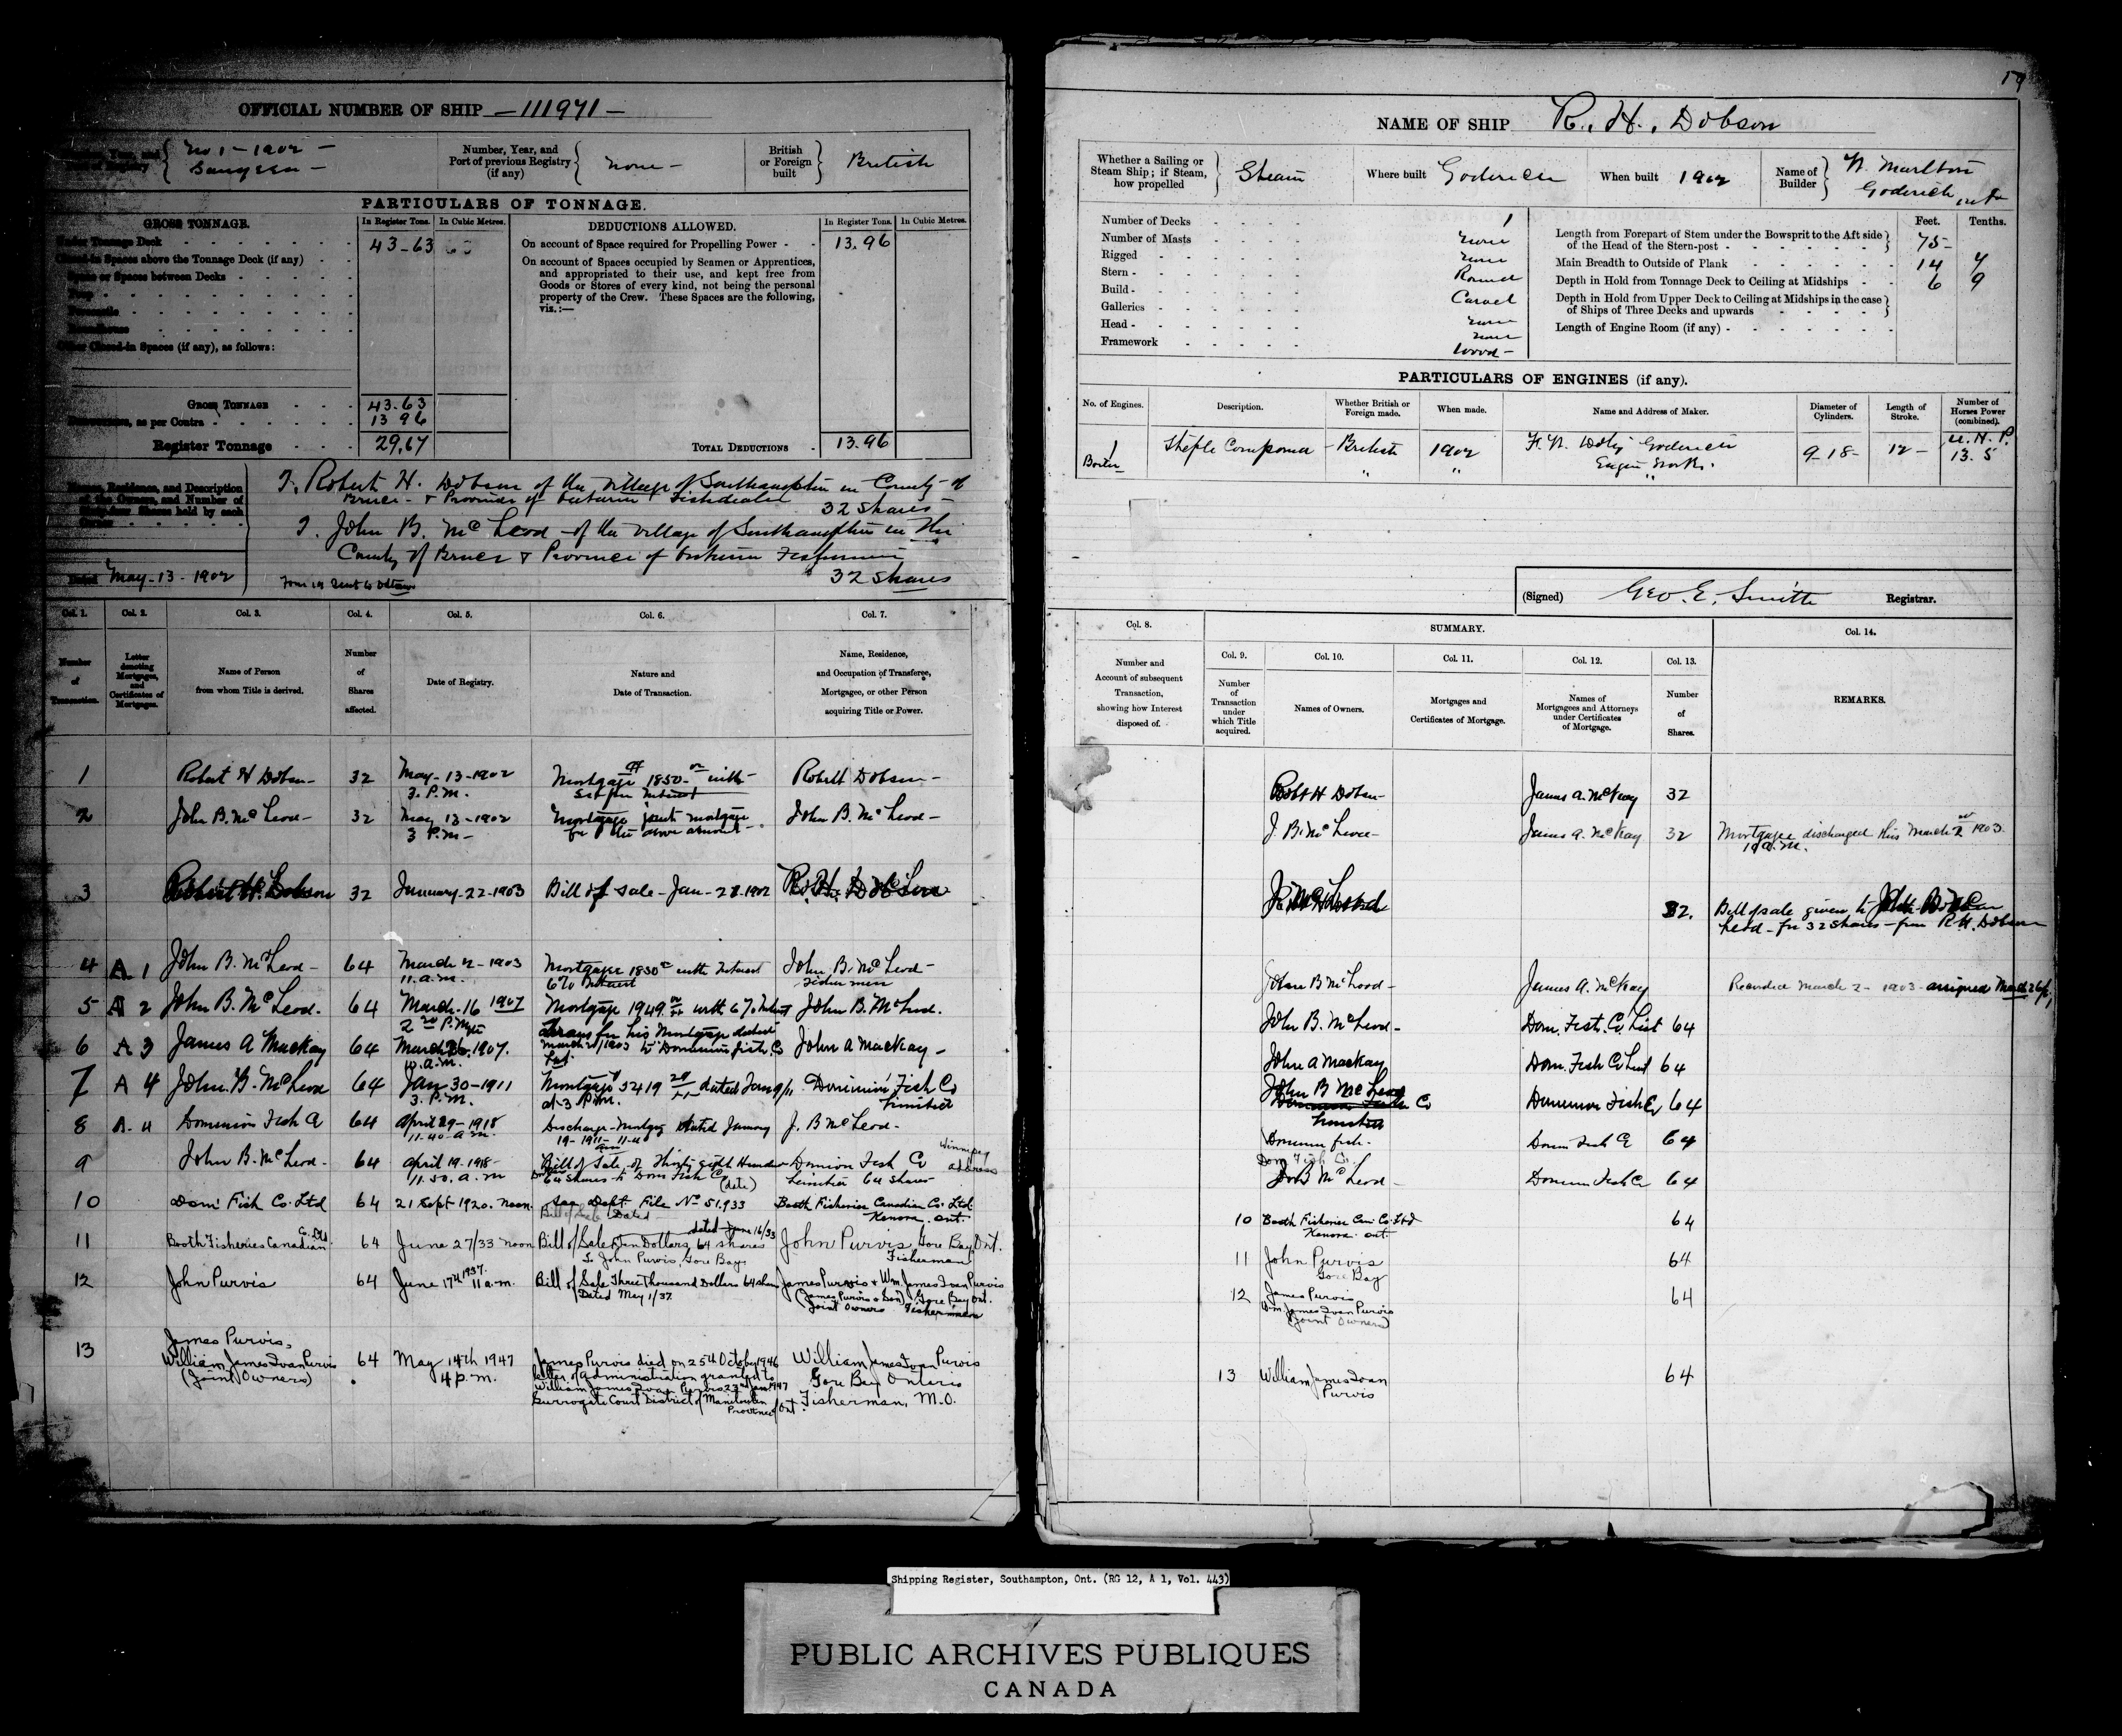 OFFICIAL NUMBER OF SHIP — 111971 —
No 1 - 1902 -
Saugeen -
Number, Year, and
Port of previous Registry
(if any)
None -
British
or Foreign
built
British
PARTICULARS OF TONNAGE.
GROSS TONNAGE.
In Register Tons.
In Cubic Metres.
Under Tonnage Deck
43-63
Closed-in Spaces above the Tonnage Deck (if any)
Space or Spaces between Decks
Other Closed-in Spaces (if any), as follows:
GROSS TONNAGE
43.63
Deductions, as per Contra
13 96
Register Tonnage
29.67
DEDUCTIONS ALLOWED.
In Register Tons.
In Cubic Metres.
On account of Space required for Propelling Power
13.96
On account of Spaces occupied by Seamen or Apprentices,
and appropriated to their use, and kept free from
Goods or Stores of every kind, not being the personal
property of the Crew. These Spaces are the following,
viz.:—
TOTAL DEDUCTIONS
13.96
Names, Residence, and Description
of the Owners, and Number of
Shares held by each
I, Robert H. Dobson of the Village of Southampton in County of
Bruce - & Province of Ontario Fishdealer
32 shares
I. John B. McLeod - of the Village of Southampton in the
County of Bruce & Province of Ontario Fisherman
32 shares
Dated May-13-1902
Form 19 sent to Ottawa
Col. 1.
Col. 2.
Col. 3.
Col. 4.
Col. 5.
Col. 6.
Col. 7.
Number
of
Transaction.
Letter
denoting
Mortgages,
and
Certificates of
Mortgages.
Name of Person
from whom Title is derived.
Number
of
Shares
affected.
Date of Registry.
Nature and
Date of Transaction.
Name, Residence,
and Occupation of Transferee,
Mortgagee, or other Person
acquiring Title or Power.
1 Robert H Dobson- 32 May-13-1902 Mortgage of 1850- with Robert Dobson-
3. P.M.
2 John B. McLeod- 32 May 13-1902 Mortgage joint mortgage John B. McLeod-
3 P.M- for the above amount-
3 32 January-22-1903 Bill of Sale-Jan-
4 A 1 John B. McLeod- 64 March 2-1903 Mortgage 1850 with Interest John B. McLeod-
11.a.m. 6% Interest
5 A 2 John B. McLeod. 64 March-16 1907 Mortgage 1949 with 6% Interest John B. McLeod.
6 A 3 James A Mackay 64 March 26, 1907. John A Mackay-
10.a.m.
7 A 4 John B. McLeod 64 Jan 30-1911 Mortgage 5419 dated Jan 9/11 Dominion Fish Co
3. P.M. at 3 P.M. Limited
8 A.4 Dominion Fish Co 64 April 29-1918 Discharge-Mortgage dated January J. B McLeod-
11-40-a.m.
9 John B. McLeod- 64 April 19-1918- Bill of Sale Dominion Fish Co Winnipeg
11.50.a.m 64 shares to Dom Fish Co Limited 64 shares address
(date)
10 Dom. Fish Co. Ltd 64 21 Sept 1920. Noon. See Dept File No 51.933 Booth Fisheries Canadian Co. Ltd
Bill of Sale Dated Kenora. Ont.
11 Booth Fisheries Canadian Co. Ltd. 64 June 27/33 noon Bill of Sale Ten Dollars, 64 shares dated June 16/33 John Purvis, Gore Bay, Ont.
To John Purvis, Gore Bay Fisherman
12 John Purvis 64 June 17th 1937. 11 a.m. Bill of Sale Three Thousand Dollars 64 shares James Purvis & Wm. James Ivan Purvis
Dated May 1/37 (James Purvis & Son) Gore Bay Ont.
Joint Owners Fishermen
13 James Purvis,
William James Ivan Purvis 64 May 14th 1947 James Purvis died on 25th October 1946 William James Ivan Purvis
(Joint Owners) 4 p.m. letter of administration granted to Gore Bay Ontario
William James Ivan Purvis 23rd Jan 1947 Fisherman, M.O.
Surrogate Court District of Manitoulin
Province of Ont.
19
NAME OF SHIP R. H. Dobson
Whether a Sailing or
Steam Ship; if Steam,
how propelled
Steam
Where built Goderich
When built 1902
Name of
Builder
W. Marlton
Goderich Ont
Number of Decks 1
Number of Masts None
Rigged None
Stern - Round
Build - Carvel
Galleries None
Head - None
Framework Wood-
Feet. Tenths.
Length from Forepart of Stem under the Bowsprit to the Aft side
of the Head of the Stern-post - 75-
Main Breadth to Outside of Plank 14 7
Depth in Hold from Tonnage Deck to Ceiling at Midships 6 9
Depth in Hold from Upper Deck to Ceiling at Midships in the case
of Ships of Three Decks and upwards
Length of Engine Room (if any) -
PARTICULARS OF ENGINES (if any).
No. of Engines.
Description.
Whether British or
Foreign made.
When made.
Name and Address of Maker.
Diameter of
Cylinders.
Length of
Stroke.
Number of
Horses Power
(combined).
1 Steple Compound British 1902 Goderich 9-18- 12- N.H.P.
Boiler " " Engine Works. 13.5
(Signed) Geo. E. Smith Registrar.
Col. 8.
SUMMARY.
Col. 14.
Col. 9.
Col. 10.
Col. 11.
Col. 12.
Col. 13.
Number and
Account of subsequent
Transaction,
showing how Interest
disposed of.
Number
of
Transaction
under
which Title
acquired.
Names of Owners.
Mortgages and
Certificates of Mortgage.
Names of
Mortgagees and Attorneys
under Certificates
of Mortgage.
Number
of
Shares.
REMARKS.
Robt H Dobson- James A. McKay 32
J. B. McLeod- James A. McKay 32 Mortgage discharged this March 2nd 1903.
10 a.m.
32. Bill of sale given to
Leod-for 32 shares-from R.H. Dobson
John B McLeod- James A. McKay Recorded March 2- 1903- assigned March 26/
John B. McLeod- Dom. Fish. Co. Limt 64
John A Mackay Dom. Fish Co Limt 64
John B McLeod Dominion Fish Co 64
Dominion Fish- Domin Fish Co 64
Dom Fish Co.
J B McLeod- Domin Fish Co 64
10 Booth Fisheries Can. Co. Ltd 64
Kenora. Ont.
11 John Purvis 64
Gore Bay
12 James Purvis 64
Wm James Ivan Purvis
(Joint Owners)
13 William James Ivan 64
Purvis
Shipping Register, Southampton, Ont. (RG 12, A 1, Vol. 443)
PUBLIC ARCHIVES PUBLIQUES
CANADA